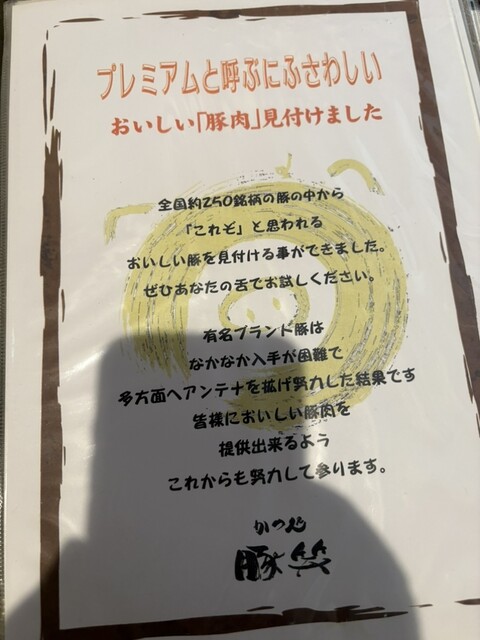 プレミアムと呼ぶにふさわしい
おいしい「豚肉」見付けました
全国約250銘柄の豚の中から
「これぞ」と思われる
おいしい豚を見付ける事ができました。
ぜひあなたの舌でお試しください。
有名ブランド豚は
なかなか入手が困難で
多方面へアンテナを拡げ努力した結果です
皆様においしい豚肉を
提供出来るよう
これからも努力して参ります。
かつ処
豚笑